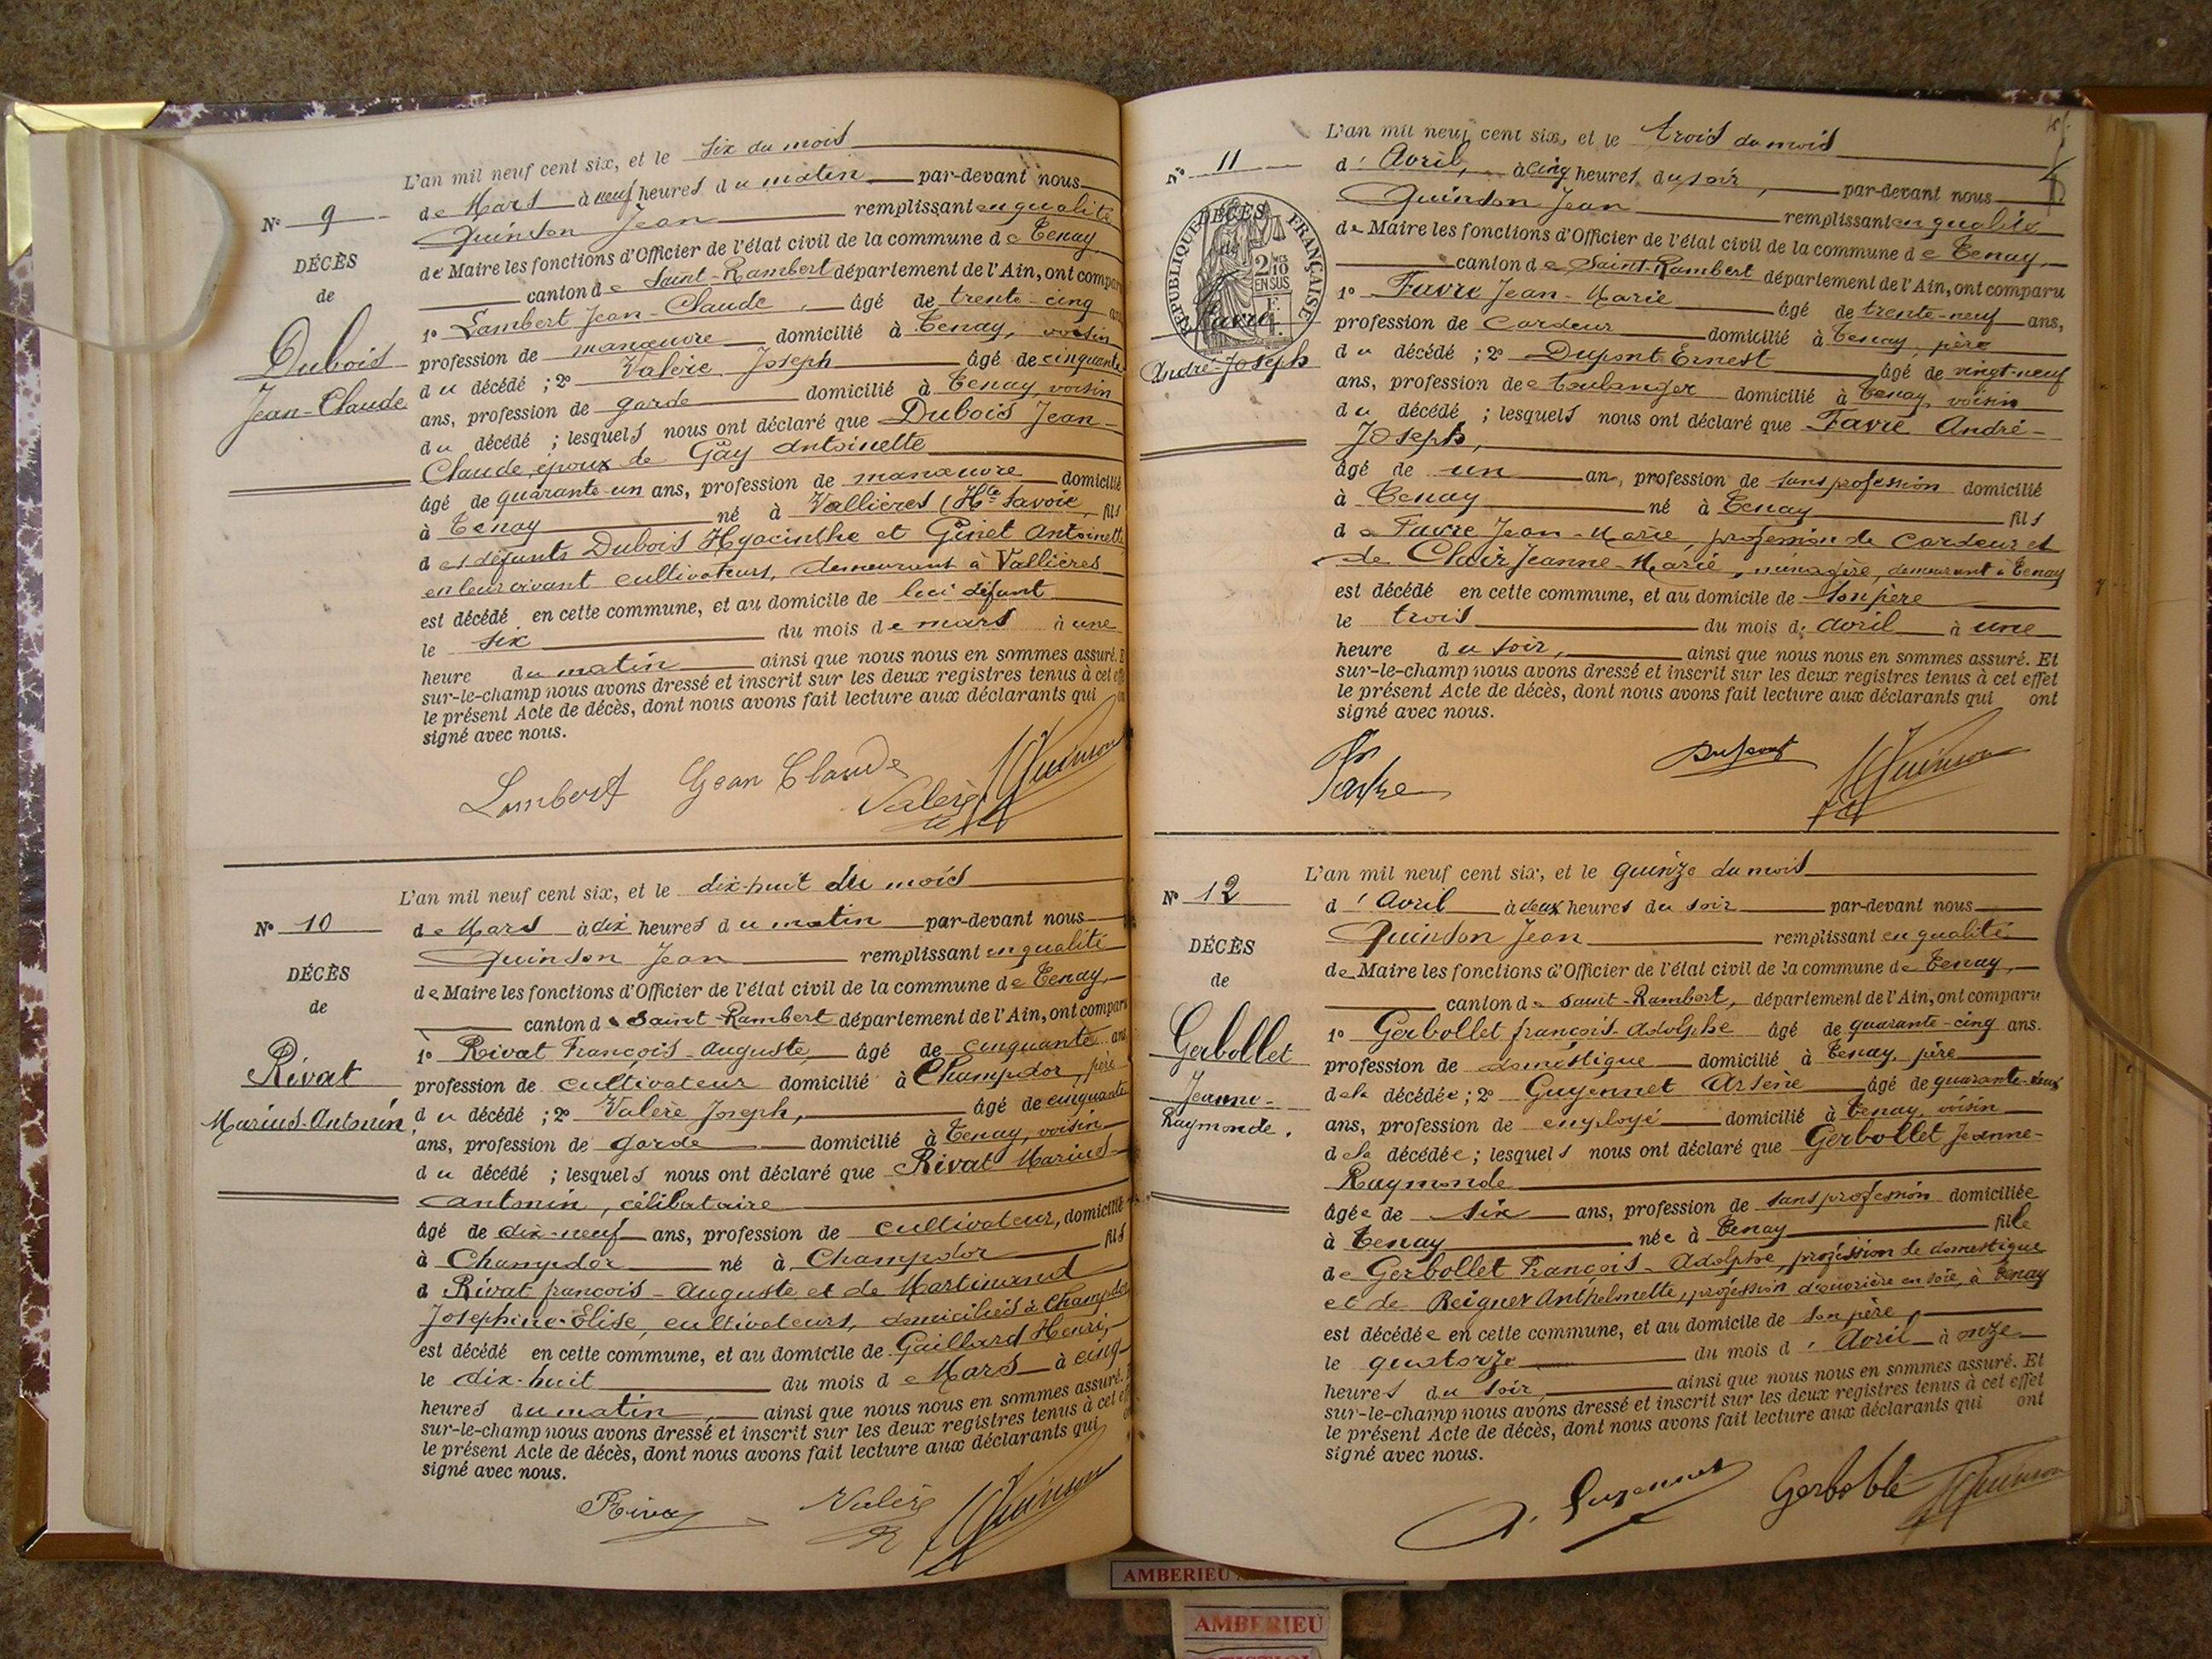 L'an mil neuf cent six, et le six du mois
N° 9
de Mars à neuf heures du matin par-devant nous
Quinson Jean remplissant en qualité
DÉCÈS
de Maire les fonctions d'Officier de l'état civil de la commune de Tenay
de
canton de Saint-Rambert département de l'Ain, ont compar
1° Lambert Jean-Claude, âgé de trente-cinq an
Dubois
profession de manœuvre domicilié à Tenay, voisin
du décédé ; 2° Valère Joseph âgé de cinquante
Jean-Claude
ans, profession de garde domicilié à Tenay, voisin
du décédé ; lesquels nous ont déclaré que Dubois Jean-
Claude, époux de Gäy Antoinette
âgé de quarante-un ans, profession de manœuvre domicilié
à Tenay né à Vallières (Hte Savoie, fils
des défunts Dubois Hyacinthe et Ginet Antoinette
en leur vivant cultivateurs, demeurant à Vallières
est décédé en cette commune, et au domicile de lui défunt
le six du mois de mars à une
heure du matin ainsi que nous nous en sommes assuré. E
sur-le-champ nous avons dressé et inscrit sur les deux registres tenus à cet effe
le présent Acte de décès, dont nous avons fait lecture aux déclarants qui on
signé avec nous.
Lambert Gean Claude Valère JQuinson
L'an mil neuf cent six, et le dix-huit du mois
N° 10
de Mars à dix heures du matin par-devant nous
Quinson Jean remplissant en qualité
DÉCÈS
de Maire les fonctions d'Officier de l'état civil de la commune de Tenay,
de
canton de Saint-Rambert département de l'Ain, ont comparu
1° Rivat François-Auguste âgé de cinquante ans
Rivat
profession de cultivateur domicilié à Champdor, père
Marius-Antonin,
du décédé ; 2° Valère Joseph, âgé de cinquante
ans, profession de garde domicilié à Tenay, voisin
du décédé ; lesquels nous ont déclaré que Rivat Marius-
Antonin, célibataire
âgé de dix-neuf ans, profession de cultivateur, domicilié
à Champdor né à Champdor fils
d Rivat François-Auguste et de Martinand
Joséphine-Elise, cultivateurs, domiciliés à Champdor
est décédé en cette commune, et au domicile de Gaillard Henri,
le dix-huit du mois de Mars à cinq
heures du matin, ainsi que nous nous en sommes assuré. E
sur-le-champ nous avons dressé et inscrit sur les deux registres tenus à cet eff
le présent Acte de décès, dont nous avons fait lecture aux déclarants qui
signé avec nous.
Rivat Valère JQuinson
L'an mil neuf cent six, et le trois du mois
N° 11
d'Avril, à cinq heures du soir, par-devant nous
Quinson Jean remplissant en qualité
RÉPUBLIQUE FRANÇAISE
DÉCÈS
de
2/10 EN SUS
de Maire les fonctions d'Officier de l'état civil de la commune de Tenay,
canton de Saint-Rambert département de l'Ain, ont comparu
1° Favre Jean-Marie âgé de trente-neuf ans,
Favre
profession de cardeur domicilié à Tenay, père
André-Joseph
du décédé ; 2° Dupont Ernest âgé de vingt-neuf
ans, profession de boulanger domicilié à Tenay, voisin
du décédé ; lesquels nous ont déclaré que Favre André-
Joseph,
âgé de un an, profession de sans profession domicilié
à Tenay né à Tenay fils
de Favre Jean-Marie, profession de cardeur et
de Clair Jeanne-Marie, ménagère, demeurant à Tenay
est décédé en cette commune, et au domicile de son père
le trois du mois d'avril à une
heure du soir, ainsi que nous nous en sommes assuré. Et
sur-le-champ nous avons dressé et inscrit sur les deux registres tenus à cet effet
le présent Acte de décès, dont nous avons fait lecture aux déclarants qui ont
signé avec nous.
Favre Dupont JQuinson
L'an mil neuf cent six, et le quinze du mois
N° 12
d'Avril à deux heures du soir par-devant nous
Quinson Jean remplissant en qualité
DÉCÈS
de Maire les fonctions d'Officier de l'état civil de la commune de Tenay,
de
canton de Saint-Rambert, département de l'Ain, ont comparu
1° Gerbollet François-Adolphe âgé de quarante-cinq ans.
Gerbollet
profession de domestique domicilié à Tenay, père
Jeanne-
de la décédée ; 2° Guyennet Arsène âgé de quarante-deux
Raymonde.
ans, profession de employé domicilié à Tenay, voisin
de la décédée ; lesquels nous ont déclaré que Gerbollet Jeanne-
Raymonde
âgée de six ans, profession de sans profession domiciliée
à Tenay née à Tenay fille
de Gerbollet François-Adolphe, profession de domestique
et de Reignier Anthelmette, profession d'ouvrière en soie, à Tenay
est décédée en cette commune, et au domicile de son père,
le quatorze du mois d'Avril à onze
heures du soir, ainsi que nous nous en sommes assuré. Et
sur-le-champ nous avons dressé et inscrit sur les deux registres tenus à cet effet
le présent Acte de décès, dont nous avons fait lecture aux déclarants qui ont
signé avec nous.
A. Guyennet Gerbollet JQuinson
AMBERIEU
AMBERIEU